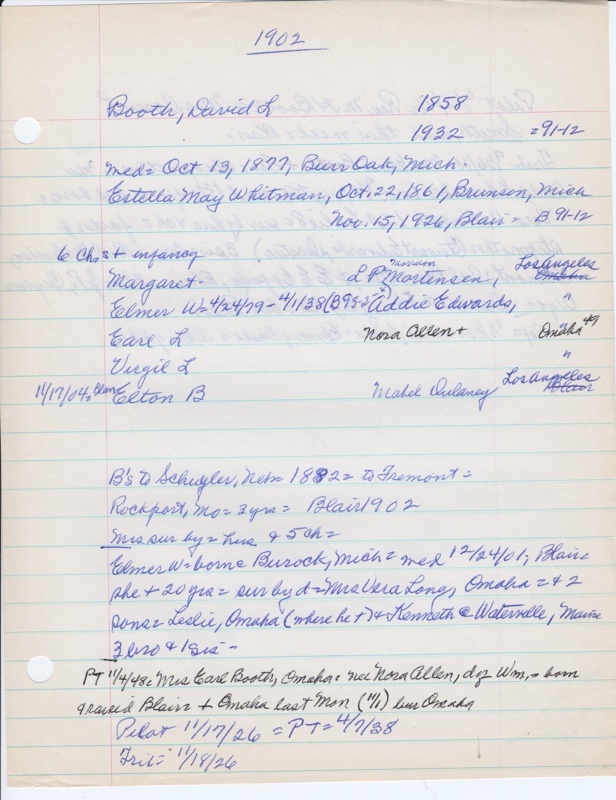 1902
Booth, David L 1858
1932 = 91-12
med = Oct 13, 1877, Burr Oak, Mich.
Estella May Whitman, Oct. 22, 1861, Brunson, Mich
Nov. 15, 1926, Blair = B 91-12
6 Ch, 1 + infancy
Margaret - L P Mortensen, Los Angeles Omaha
Elmer W = 4/24/79 - 4/1/38 Addie Edwards, "
Earl L Nora Allen + Omaha 49
Virgil L "
11/17/04 = Blair Elton B Mabel Dulaney Los Angeles Blair
B's to Schuyler, Neb = 1882 = to Fremont =
Rockport, Mo = 3 yrs = Blair 1902
Mrs sur by = hus & 5 ch =
Elmer W = born Burock, Mich = med 12/24/01; Blair =
she + 20 yrs = sur by d = Mrs Vera Long, Omaha = & 2
sons = Leslie, Omaha (where he +) & Kenneth @ Waterville, Maine
3 bro & 1 sis -
PT 11/4/48 = Mrs Earl Booth, Omaha = nee Nora Allen, d of Wm, = born
& raised Blair = + Omaha last Mon (11/1) bur Omaha
Pilot 11/17/26 = PT = 4/7/38
Trib = 11/18/26